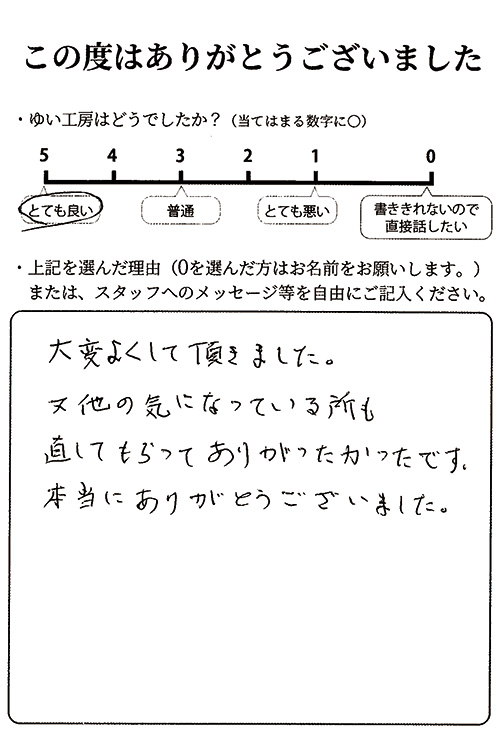 この度はありがとうございました
・ゆい工房はどうでしたか？（当てはまる数字に〇）
5 4 3 2 1 0
とても良い 普通 とても悪い 書ききれないので
直接話したい
・上記を選んだ理由（0を選んだ方はお名前をお願いします。）
または、スタッフへのメッセージ等を自由にご記入ください。
大変よくして頂きました。
又他の気になっている所も
直してもらってありがったかったです。
本当にありがとうございました。